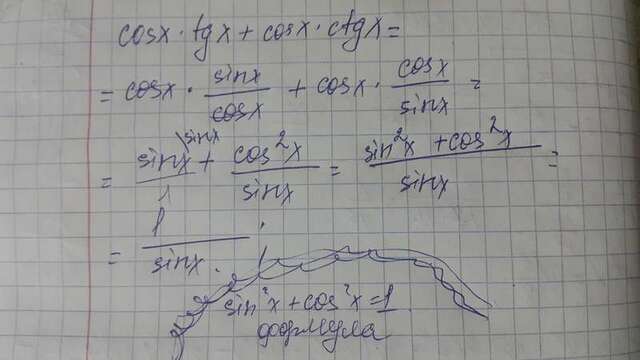 cosx · tgx + cosx · ctgx =
= cosx · sinx/cosx + cosx · cosx/sinx =
= sinx/1 \sinx + cos²x/sinx = sin²x + cos²x/sinx =
= 1/sinx.
sin²x + cos²x = 1
формула